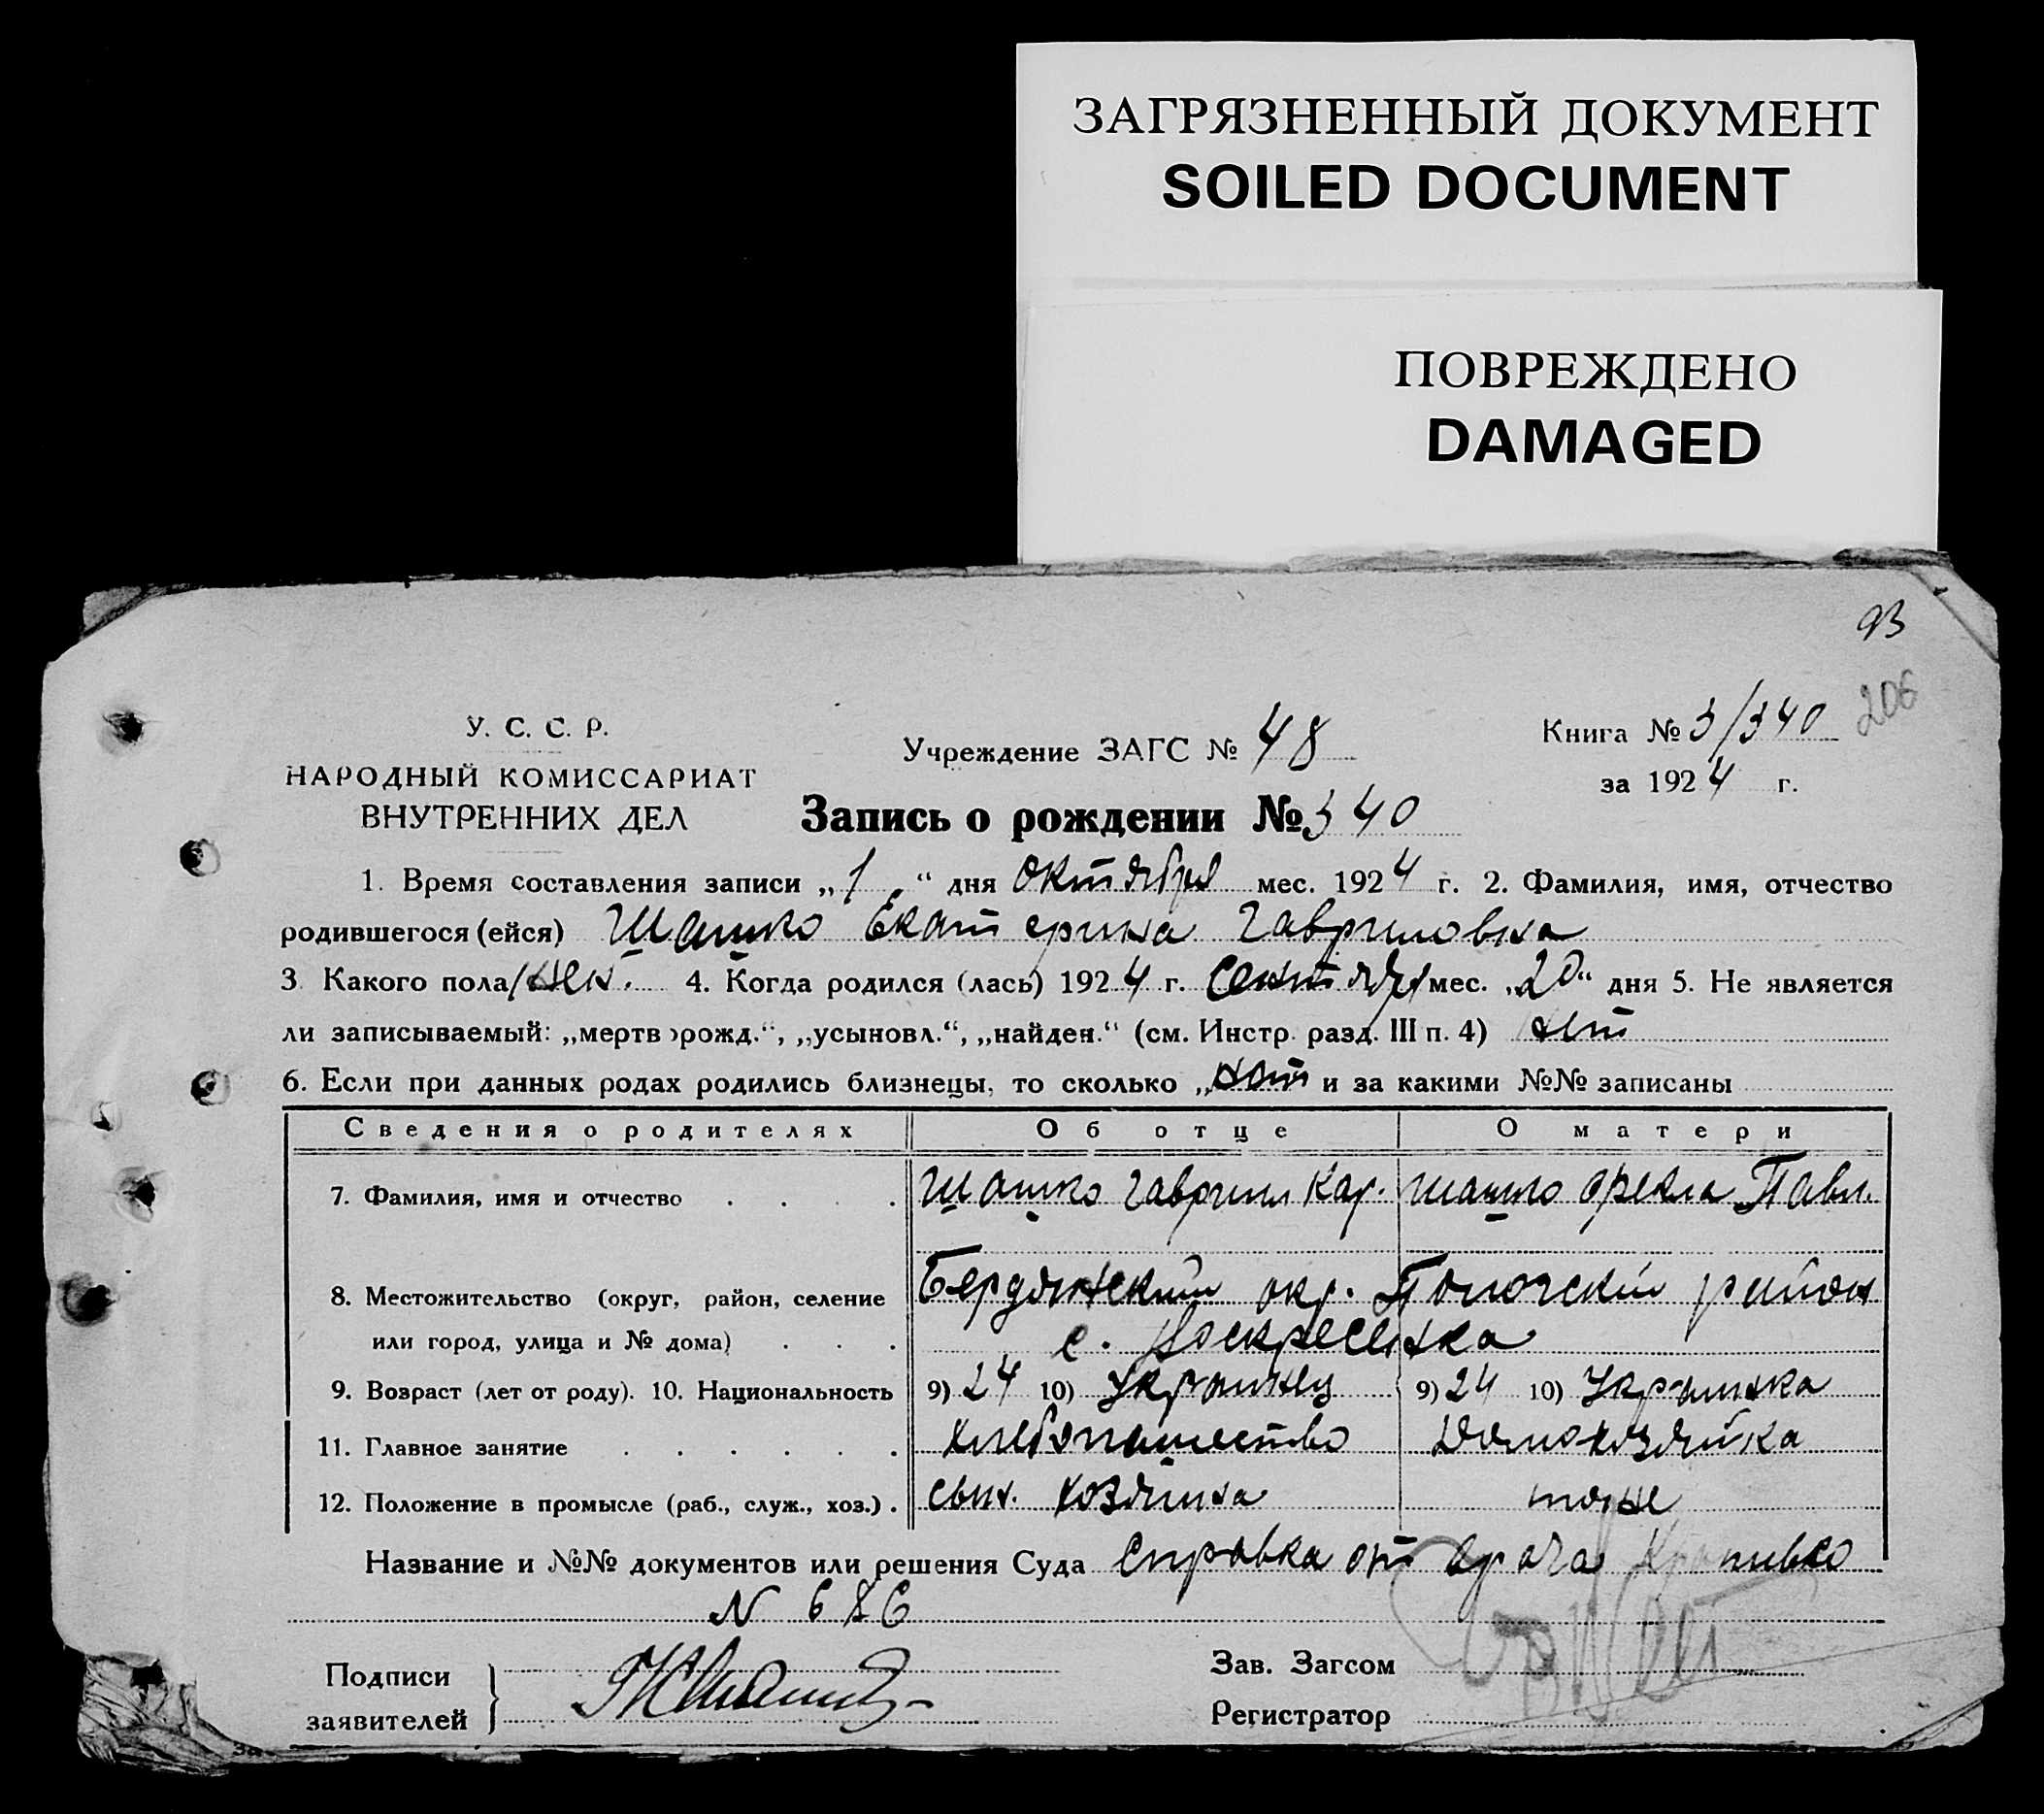 ЗАГРЯЗНЕННЫЙ ДОКУМЕНТ
SOILED DOCUMENT
ПОВРЕЖДЕНО
DAMAGED
93
206
У. С. С. Р.
НАРОДНЫЙ КОМИССАРИАТ
ВНУТРЕННИХ ДЕЛ
Учреждение ЗАГС № 48
Книга № 3/340
за 1924 г.
Запись о рождении № 340
1. Время составления записи „1“ дня октября мес. 1924 г. 2. Фамилия, имя, отчество
родившегося (ейся) Шашко Екатерина Гавриловна
3 Какого пола жен. 4. Когда родился (лась) 1924 г. Сентября мес. „20“ дня 5. Не является
ли записываемый: „мертворожд.“, „усыновл.“, „найден.“ (см. Инстр. разд. III п. 4) нет
6. Если при данных родах родились близнецы, то сколько „нет и за какими №№ записаны
Сведения о родителях Об отце О матери
7. Фамилия, имя и отчество Шашко Гаврил Кар. Шашко Фекла Павл.
8. Местожительство (округ, район, селение Бердянский окр. Пологский район
или город, улица и № дома) с. Воскресенка
9. Возраст (лет от роду). 10. Национальность 9) 24 10) Украинец 9) 24 10) Украинка
11. Главное занятие хлебопашество Домохозяйка
12. Положение в промысле (раб., служ., хоз.) сын. хозяина тоже
Название и №№ документов или решения Суда Справка от врача Кропивко
N 686
Подписи
заявителей
Зав. Загсом
Регистратор